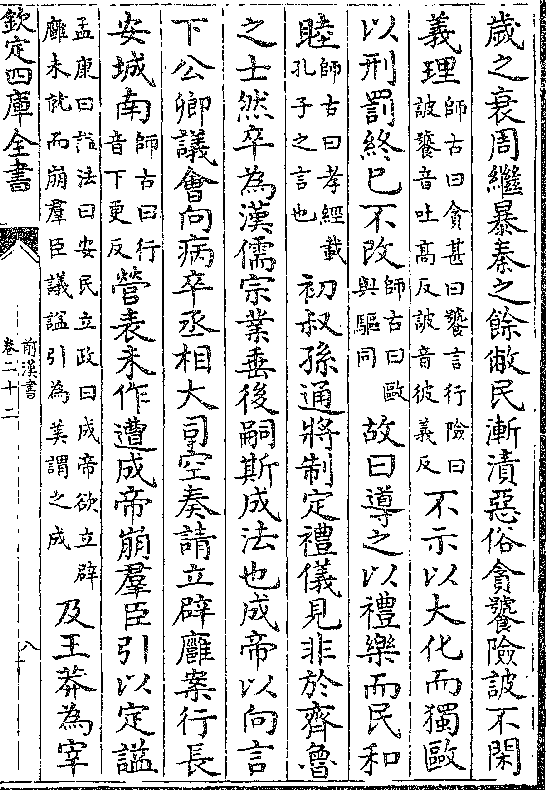 歲之衰周繼暴秦之餘敝民漸漬惡俗貪饕險詖不閑
義理師古曰貪甚曰饕言行險曰詖饕音吐高反詖音彼義反不示以大化而獨歐
以刑罰終已不改師古曰歐與驅同故曰導之以禮樂而民和
睦師古曰孝經載孔子之言也初叔孫通將制定禮儀見非於齊魯
之士然卒為漢儒宗業垂後嗣斯成法也成帝以向言
下公卿議會向病卒丞相大司空奏請立辟廱案行長
安城南師古曰行音下更反營表未作遭成帝崩羣臣引以定諡
孟康曰諡法曰安民立政曰成帝欲立辟廱未就而崩羣臣議諡引為美謂之成及王莽為宰
欽定四庫全書
前漢書
卷二十二
八